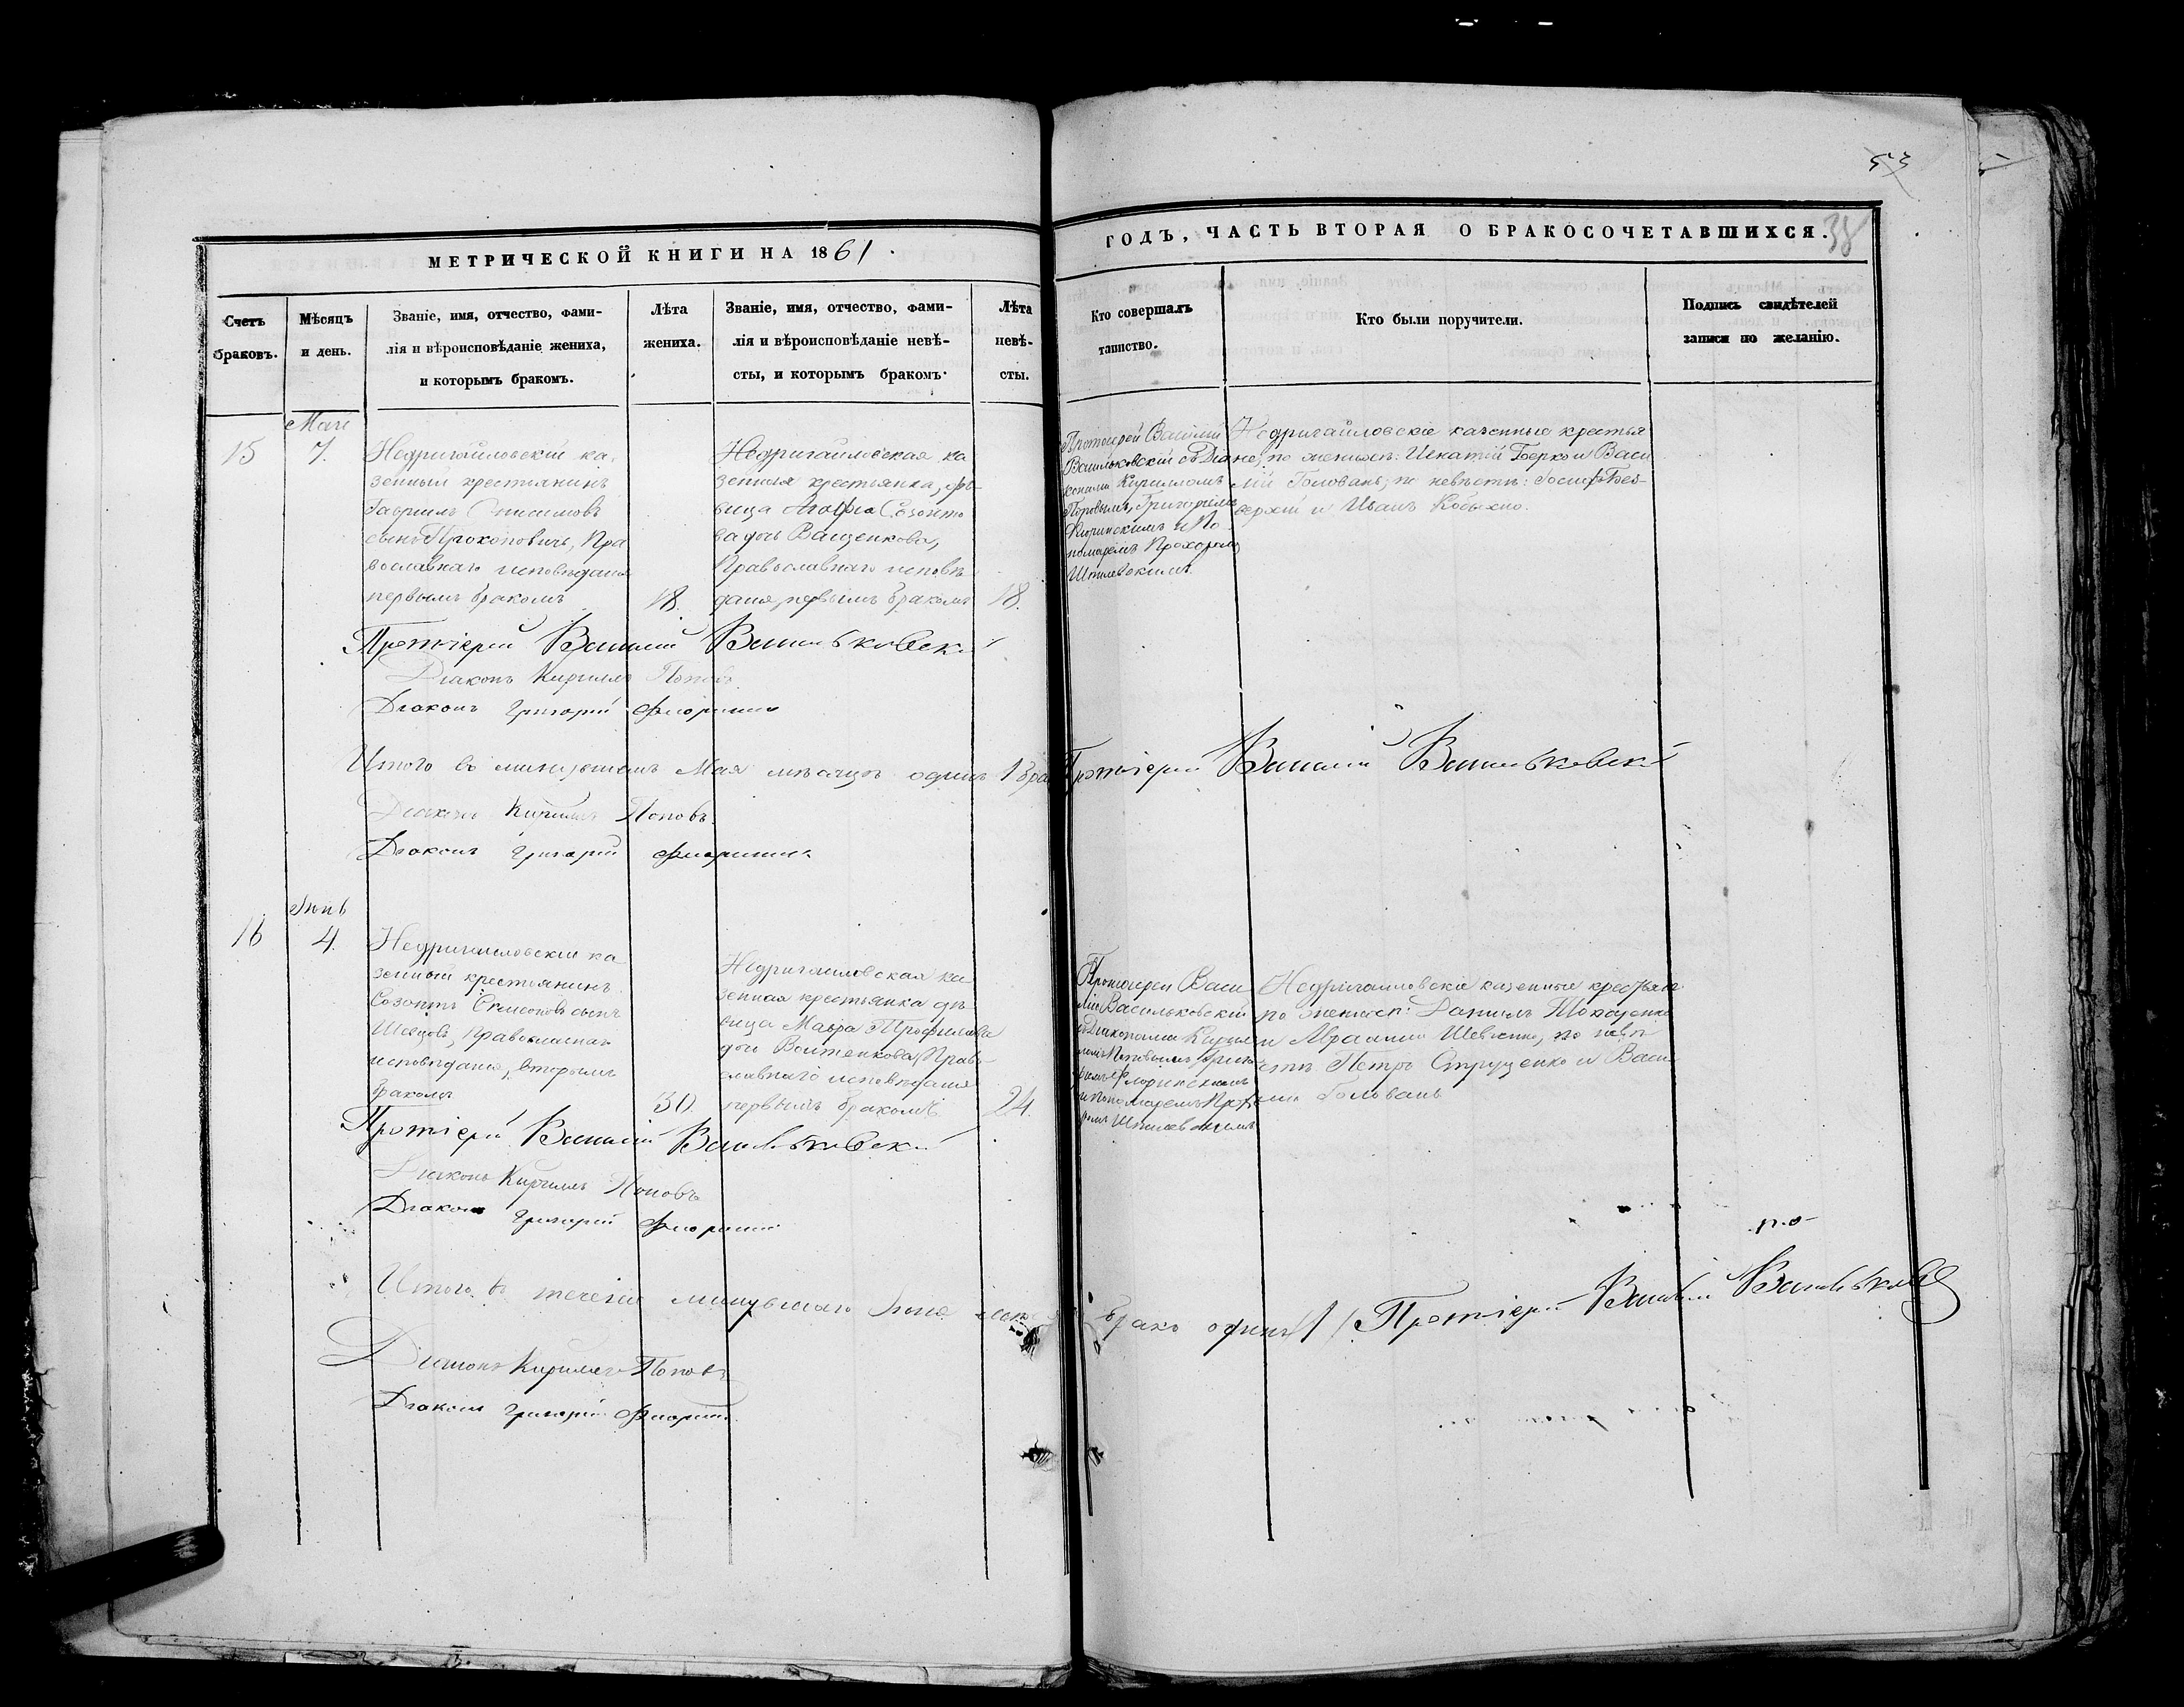 53
38
МЕТРИЧЕСКОЙ КНИГИ НА 1861
ГОДЪ, ЧАСТЬ ВТОРАЯ О БРАКОСОЧЕТАВШИХСЯ.
Счетъ
браковъ.
Мѣсяцъ
и день.
Званіе, имя, отчество, фами-
лія и вѣроисповѣданіе жениха,
и которымъ бракомъ.
Лѣта
жениха.
Званіе, имя, отчество, фами-
лія и вѣроисповѣданіе невѣ-
сты, и которымъ бракомъ.
Лѣта
невѣ-
сты.
Кто совершалъ
таинство.
Кто были поручители.
Подпись свидѣтелей
записи по желанію.
15
Маія
7.
Недригайловскій ка-
зенный крестьянинъ
Гавріилъ Онисимовъ
сынъ Прокоповичъ, Пра
вославнаго исповѣданія
первымъ бракомъ
18.
Недригайловская ка
зенная крестьянка, дѣ-
вица Агафія Созонто
ва дочь Ващенкова,
Православнаго исповѣ
данія, первымъ бракомъ
18.
Протоіерей Василій
Васильковскій съ Діа
конами Кирилломъ
Поповымъ, Григоріемъ
Флоринскимъ и По
номаремъ Прохоромъ
Недригайловскіе казенные крестья
не, по женихѣ: Игнатій Берко и Васи
лій Голованъ; по невѣстѣ: Іосифъ Без-
верхій и Иванъ
Протоіерей Василій Васильковскій
Діаконъ Кириллъ Поповъ
Діаконъ Григорій Флоринскій
Итого въ минувшемъ Маѣ мѣсяцѣ одинъ 1 бра
Протоіерей Василій Васильковскій
Діаконъ Кириллъ Поповъ.
Діаконъ Григорій Флоринскій
16
Іюнь
4.
Недригайловскій ка
зенный крестьянинъ
Созонтъ Симеоновъ сынъ
Шевцовъ, православнаго
исповѣданія, вторымъ
бракомъ
30.
Недригайловская ка
зенная крестьянка дѣ
вица Мавра Трофимова
дочь Войтенкова, Право
славнаго исповѣданія
первымъ бракомъ
24.
Протоіерей Васи
лій Васильковскій
съ Діаконами Кирил
ломъ Поповымъ, Григо
ріемъ Флоринскимъ
и Пономаремъ Прохо
ромъ
Недригайловскіе казенные крестьяне
по женихѣ: Даніилъ
и Авраамій Шевченко, по невѣ
стѣ Петръ Струценко и Васи
лій Голованъ
Протоіерей Василій Васильковскій
Діаконъ Кириллъ Поповъ
Діаконъ Григорій Флоринскій
Итого въ теченіи минувшаго Іюня
бракъ одинъ /1/ Протоіерей Василій Васильковскій
Діаконъ Кириллъ Поповъ
Діаконъ Григорій Флоринскій